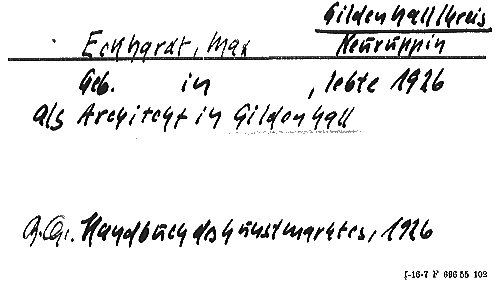 Gildenhall Kreis
Eckhardt, Max Neuruppin
Geb. in , lebte 1926
als Architekt in Gildenhall
Handbuch des Kunstmarktes, 1926
I-16-7 F 696 55 102